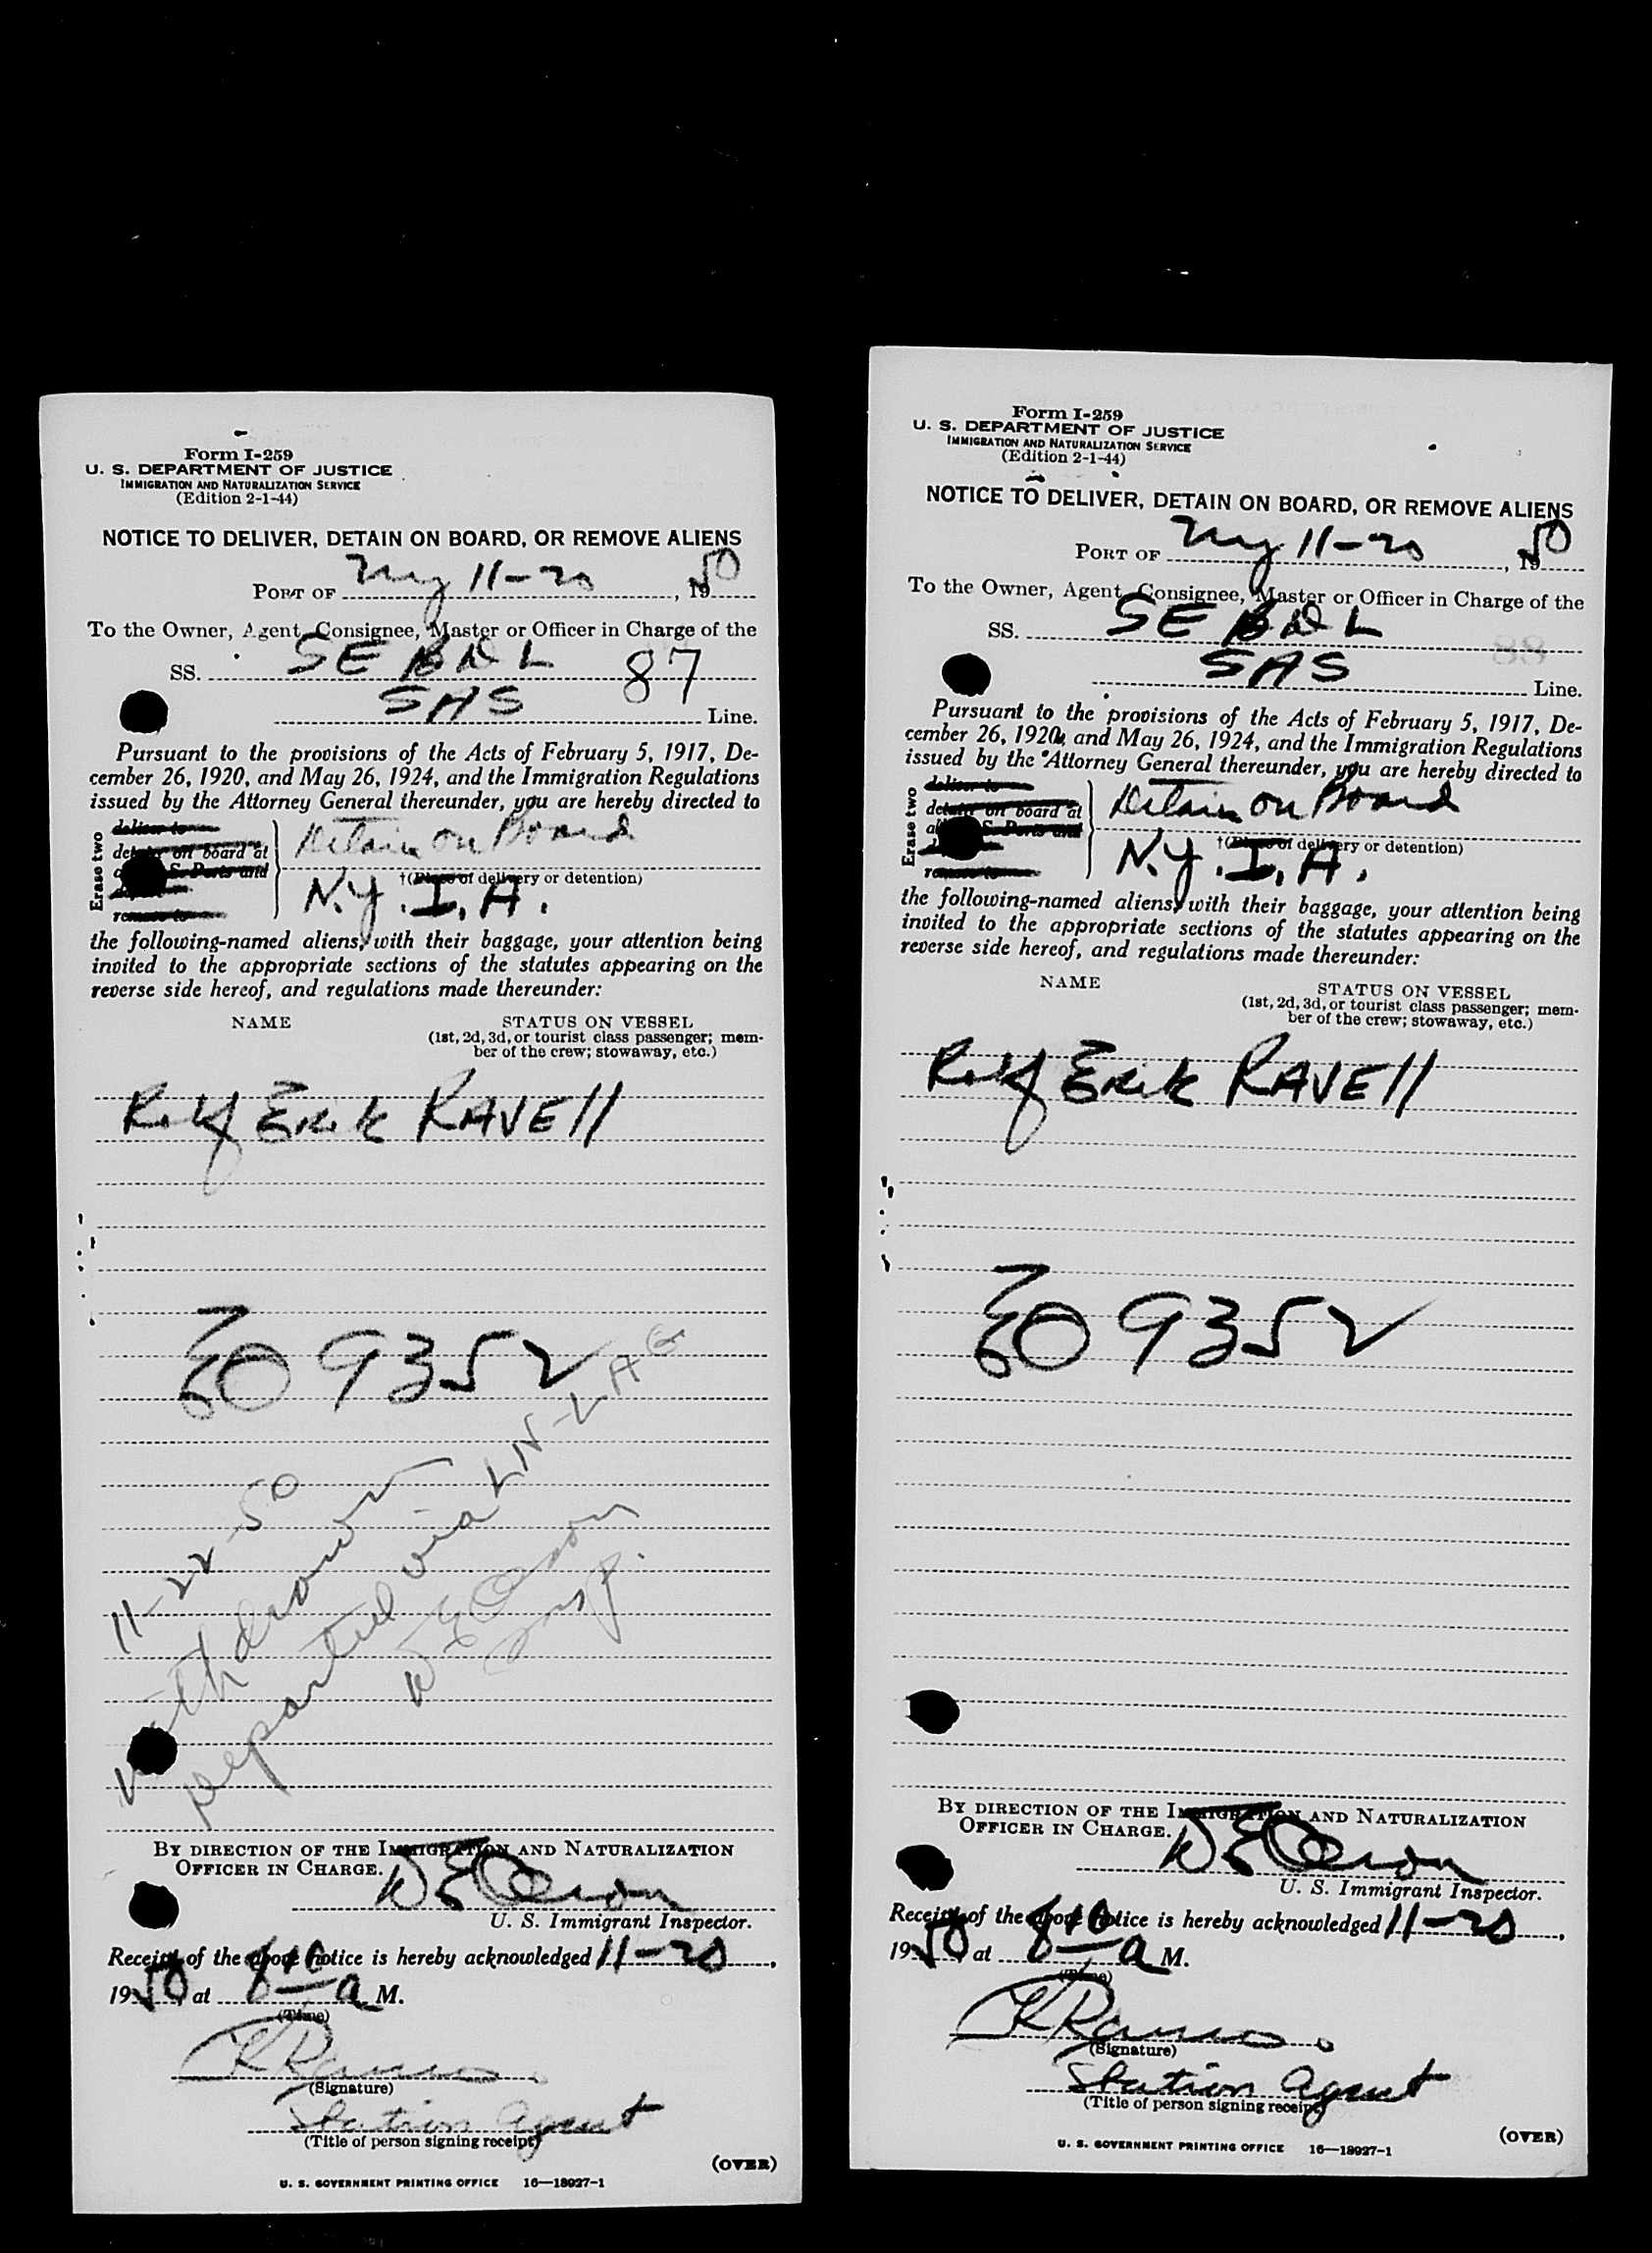 Form I-259
U. S. DEPARTMENT OF JUSTICE
IMMIGRATION AND NATURALIZATION SERVICE
(Edition 2-1-44)
NOTICE TO DELIVER, DETAIN ON BOARD, OR REMOVE ALIENS
PORT OF Ny 11-20, 1950
To the Owner, Agent, Consignee, Master or Officer in Charge of the
SS. SE BDL 87
SAS Line.
Pursuant to the provisions of the Acts of February 5, 1917, De-
cember 26, 1920, and May 26, 1924, and the Immigration Regulations
issued by the Attorney General thereunder, you are hereby directed to
Erase two
deliver to
detain on board at
U. S. Ports and
remove to
Detain on Board
†(Place of delivery or detention)
N.Y. I. A.
the following-named aliens, with their baggage, your attention being
invited to the appropriate sections of the statutes appearing on the
reverse side hereof, and regulations made thereunder:
NAME STATUS ON VESSEL
(1st, 2d, 3d, or tourist class passenger; mem-
ber of the crew; stowaway, etc.)
Rolf Erik RAVEll
30 9352
11-22-50
withdrawn
departed via LN-LAG
W E Olson
Insp.
BY DIRECTION OF THE IMMIGRATION AND NATURALIZATION
OFFICER IN CHARGE.
W E Olson
U. S. Immigrant Inspector.
Receipt of the above notice is hereby acknowledged 11-20,
1950 at 8 10 a M.
(Time)
(Signature)
Station Agent
(Title of person signing receipt)
(OVER)
U. S. GOVERNMENT PRINTING OFFICE 16—18927-1
Form I-259
U. S. DEPARTMENT OF JUSTICE
IMMIGRATION AND NATURALIZATION SERVICE
(Edition 2-1-44)
NOTICE TO DELIVER, DETAIN ON BOARD, OR REMOVE ALIENS
PORT OF Ny 11-20, 1950
To the Owner, Agent, Consignee, Master or Officer in Charge of the
SS. SE BDL 88
SAS Line.
Pursuant to the provisions of the Acts of February 5, 1917, De-
cember 26, 1920, and May 26, 1924, and the Immigration Regulations
issued by the Attorney General thereunder, you are hereby directed to
Erase two
deliver to
detain on board at
U. S. Ports and
remove to
Detain on Board
†(Place of delivery or detention)
N.Y. I. A.
the following-named aliens, with their baggage, your attention being
invited to the appropriate sections of the statutes appearing on the
reverse side hereof, and regulations made thereunder:
NAME STATUS ON VESSEL
(1st, 2d, 3d, or tourist class passenger; mem-
ber of the crew; stowaway, etc.)
Rolf Erik RAVEll
30 9352
BY DIRECTION OF THE IMMIGRATION AND NATURALIZATION
OFFICER IN CHARGE.
W E Olson
U. S. Immigrant Inspector.
Receipt of the above notice is hereby acknowledged 11-20,
1950 at 8 10 a M.
(Time)
(Signature)
Station Agent
(Title of person signing receipt)
(OVER)
U. S. GOVERNMENT PRINTING OFFICE 16—18927-1